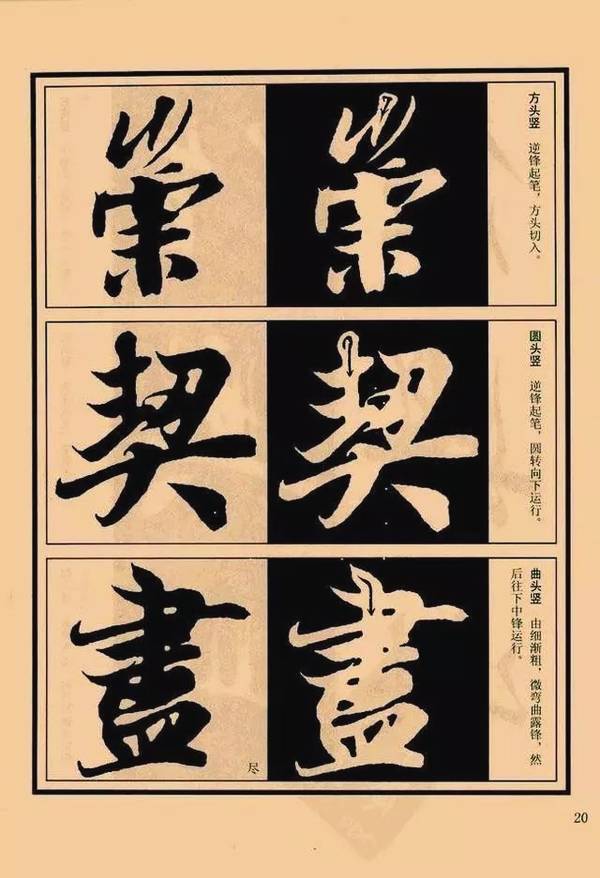 方头竖 逆锋起笔，方头切入。
崇
崇
圆头竖 逆锋起笔，圆转向下运行。
契
契
曲头竖 由细渐粗，微弯曲露锋，然
后往下中锋运行。
盡
盡
尽
20